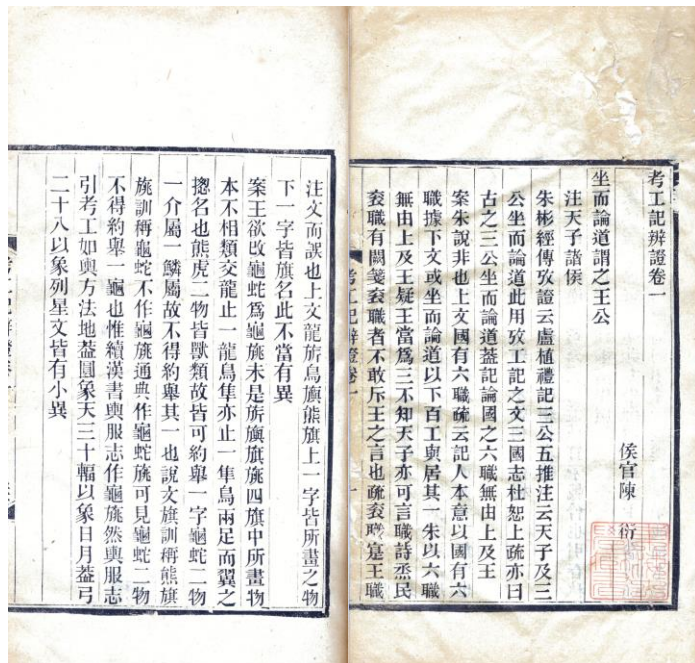 考工記辨證卷一
侯官陳 衍
坐而論道謂之王公
注天子諸侯
朱彬經傳攷證云盧植禮記三公五推注云天子及三
公坐而論道此用攷工記之文三國志杜恕上疏亦曰
古之三公坐而論道蓋記論國之六職無由上及王
案朱說非也上文國有六職疏云記人本意以國有六
職據下文或坐而論道以下百工與居其一朱以六職
無由上及王疑王當爲三不知天子亦可言職詩烝民
袞職有闕箋袞職者不敢斥王之言也疏袞職實王職
考工記辨證卷一
一
注文而誤也上文龍旂鳥旟熊旗上一字皆所畫之物
下一字皆旗名此不當有異
案王欲改龜蛇爲龜旐未是旂旟旗旐四旗中所畫物
本不相類交龍止一龍鳥隼亦止一隼鳥兩足而翼之
摠名也熊虎二物皆獸類故皆可約舉一字龜蛇二物
一介屬一鱗屬故不得約舉其一也說文旗訓稱熊旗
旐訓稱龜蛇不作龜旐通典作龜蛇旐可見龜蛇二物
不得約舉一龜也惟續漢書輿服志作龜旐然輿服志
引考工如輿方法地蓋圓象天三十輻以象日月蓋弓
二十八以象列星文皆有小異